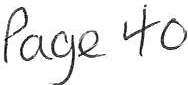 Page 40